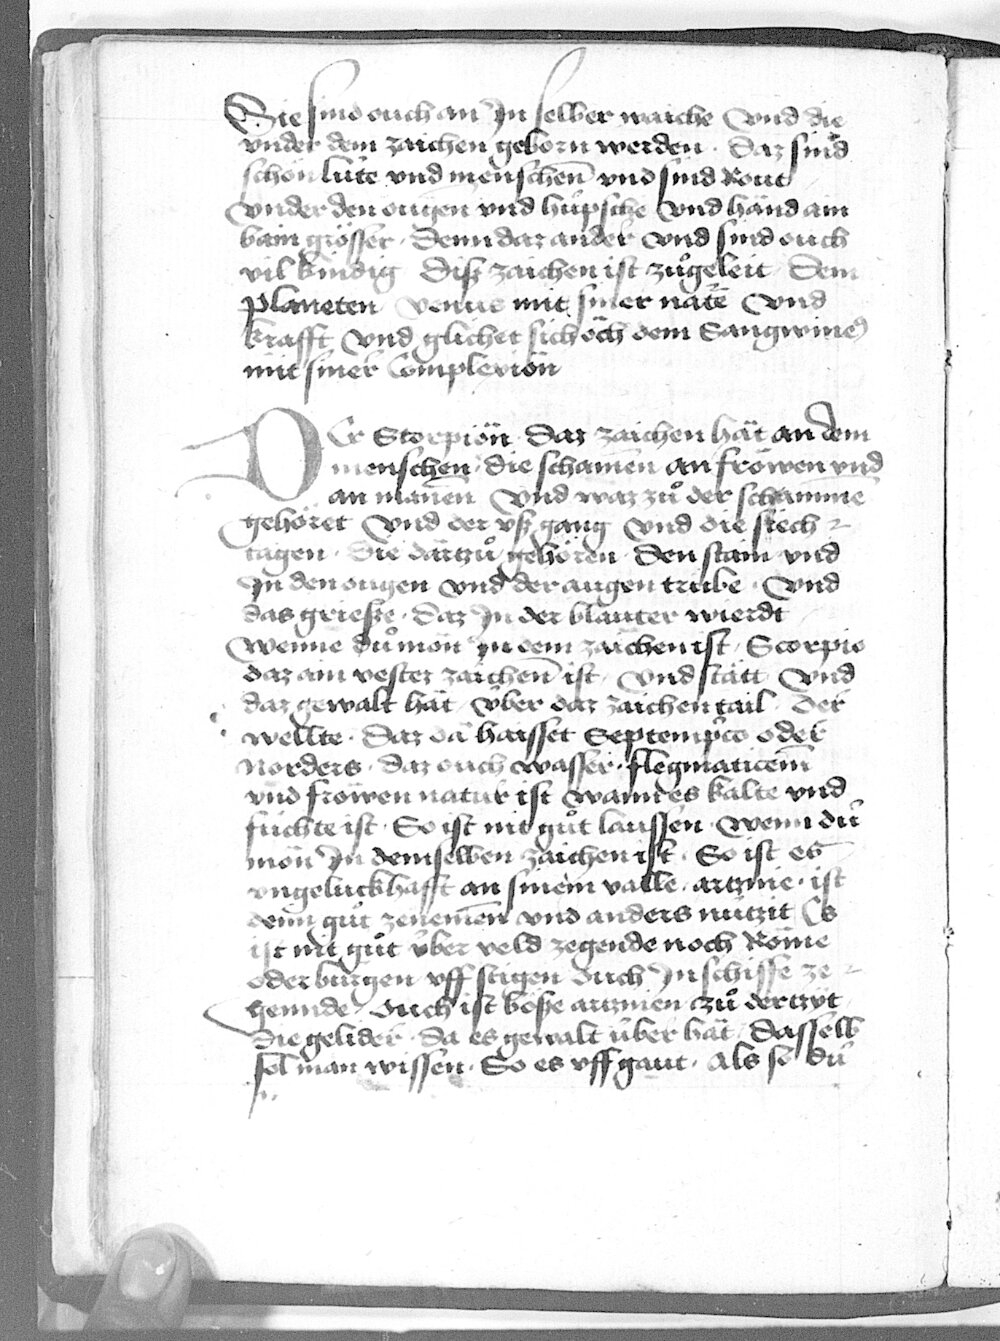 Sie sind ouch an In selber waiche Vnd die
vnder dem zaichen geborn werden · Daz sind
schön lüte vnd menschen vnd sind Rout
Vnder den ougen vnd hüpsche Vnd händ ain
bain grösser · Denn daz ander Vnd sind ouch
vil kindig Diß zaichen ist zůgeleit Dem
planeten Venus mit siner näte Vnd
krafft Vnd glichet sich öch dem Sangwineo
mit siner Complexion
DEr Scorpion Daz zaichen hät an dem
menschen die schamen an fröwen vnd
an manen Vnd waz zů der schamme
gehöret Vnd der vß gang Vnd die siech
tagen · die dartzů gehören Den stain vnd
In den ougen vnd der augen trube · Vnd
das grieße · daz In der blauter wierdt
Wenne dů mön In dem zaichen ist · Scorpio
daz ain vestez zaichen ist · Vnd stätt Vnd
daz gewalt hät über daz zaichen tail der
wellte · Daz dä haisset Septemptro oder
Norders · daz ouch wasser · flegmaticem
vnd fröwen natur ist Wann es kalte vnd
füchte ist · So ist nit gůt laussen · Wenn dü
mön In demselben zaichen ist · So ist es
vngelückhafft an sinem valle · artznie · ist
denn gůt zenemen vnd anders nützit Es
ist nit gůt über veld zegende noch Röme
oder bürgen vff stigen Ouch In schiffe ze
gennde Ouch ist böße artznien zů der tzÿt
die gelider · da es gewalt über hät Dasselb
sol man wissen · So es vff gaut · Als so dü